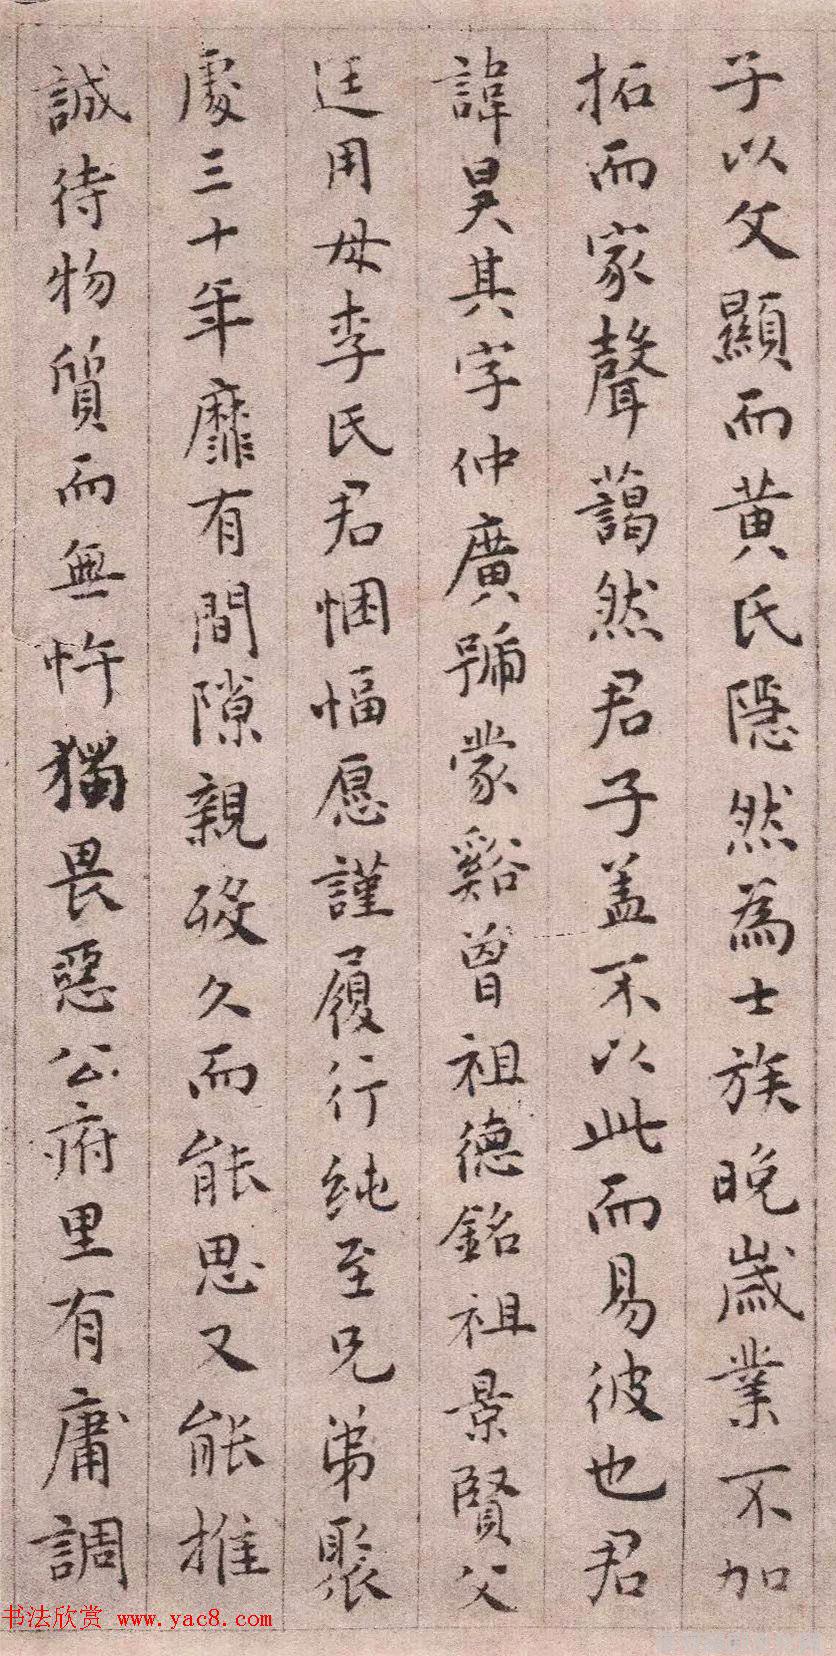 子以父顯而黄氏隱然為士族晚歲業不加
拓而家聲藹然君子盖不以此而易彼也君
諱昊其字仲廣號蒙谿曾祖德銘祖景賢父
廷用母李氏君悃愊愿謹履行純至兄弟聚
處三十年靡有間隙親歿久而能思又能推
誠待物質而無忤獨畏惡公府里有庸調
书法欣赏 www.yac8.com